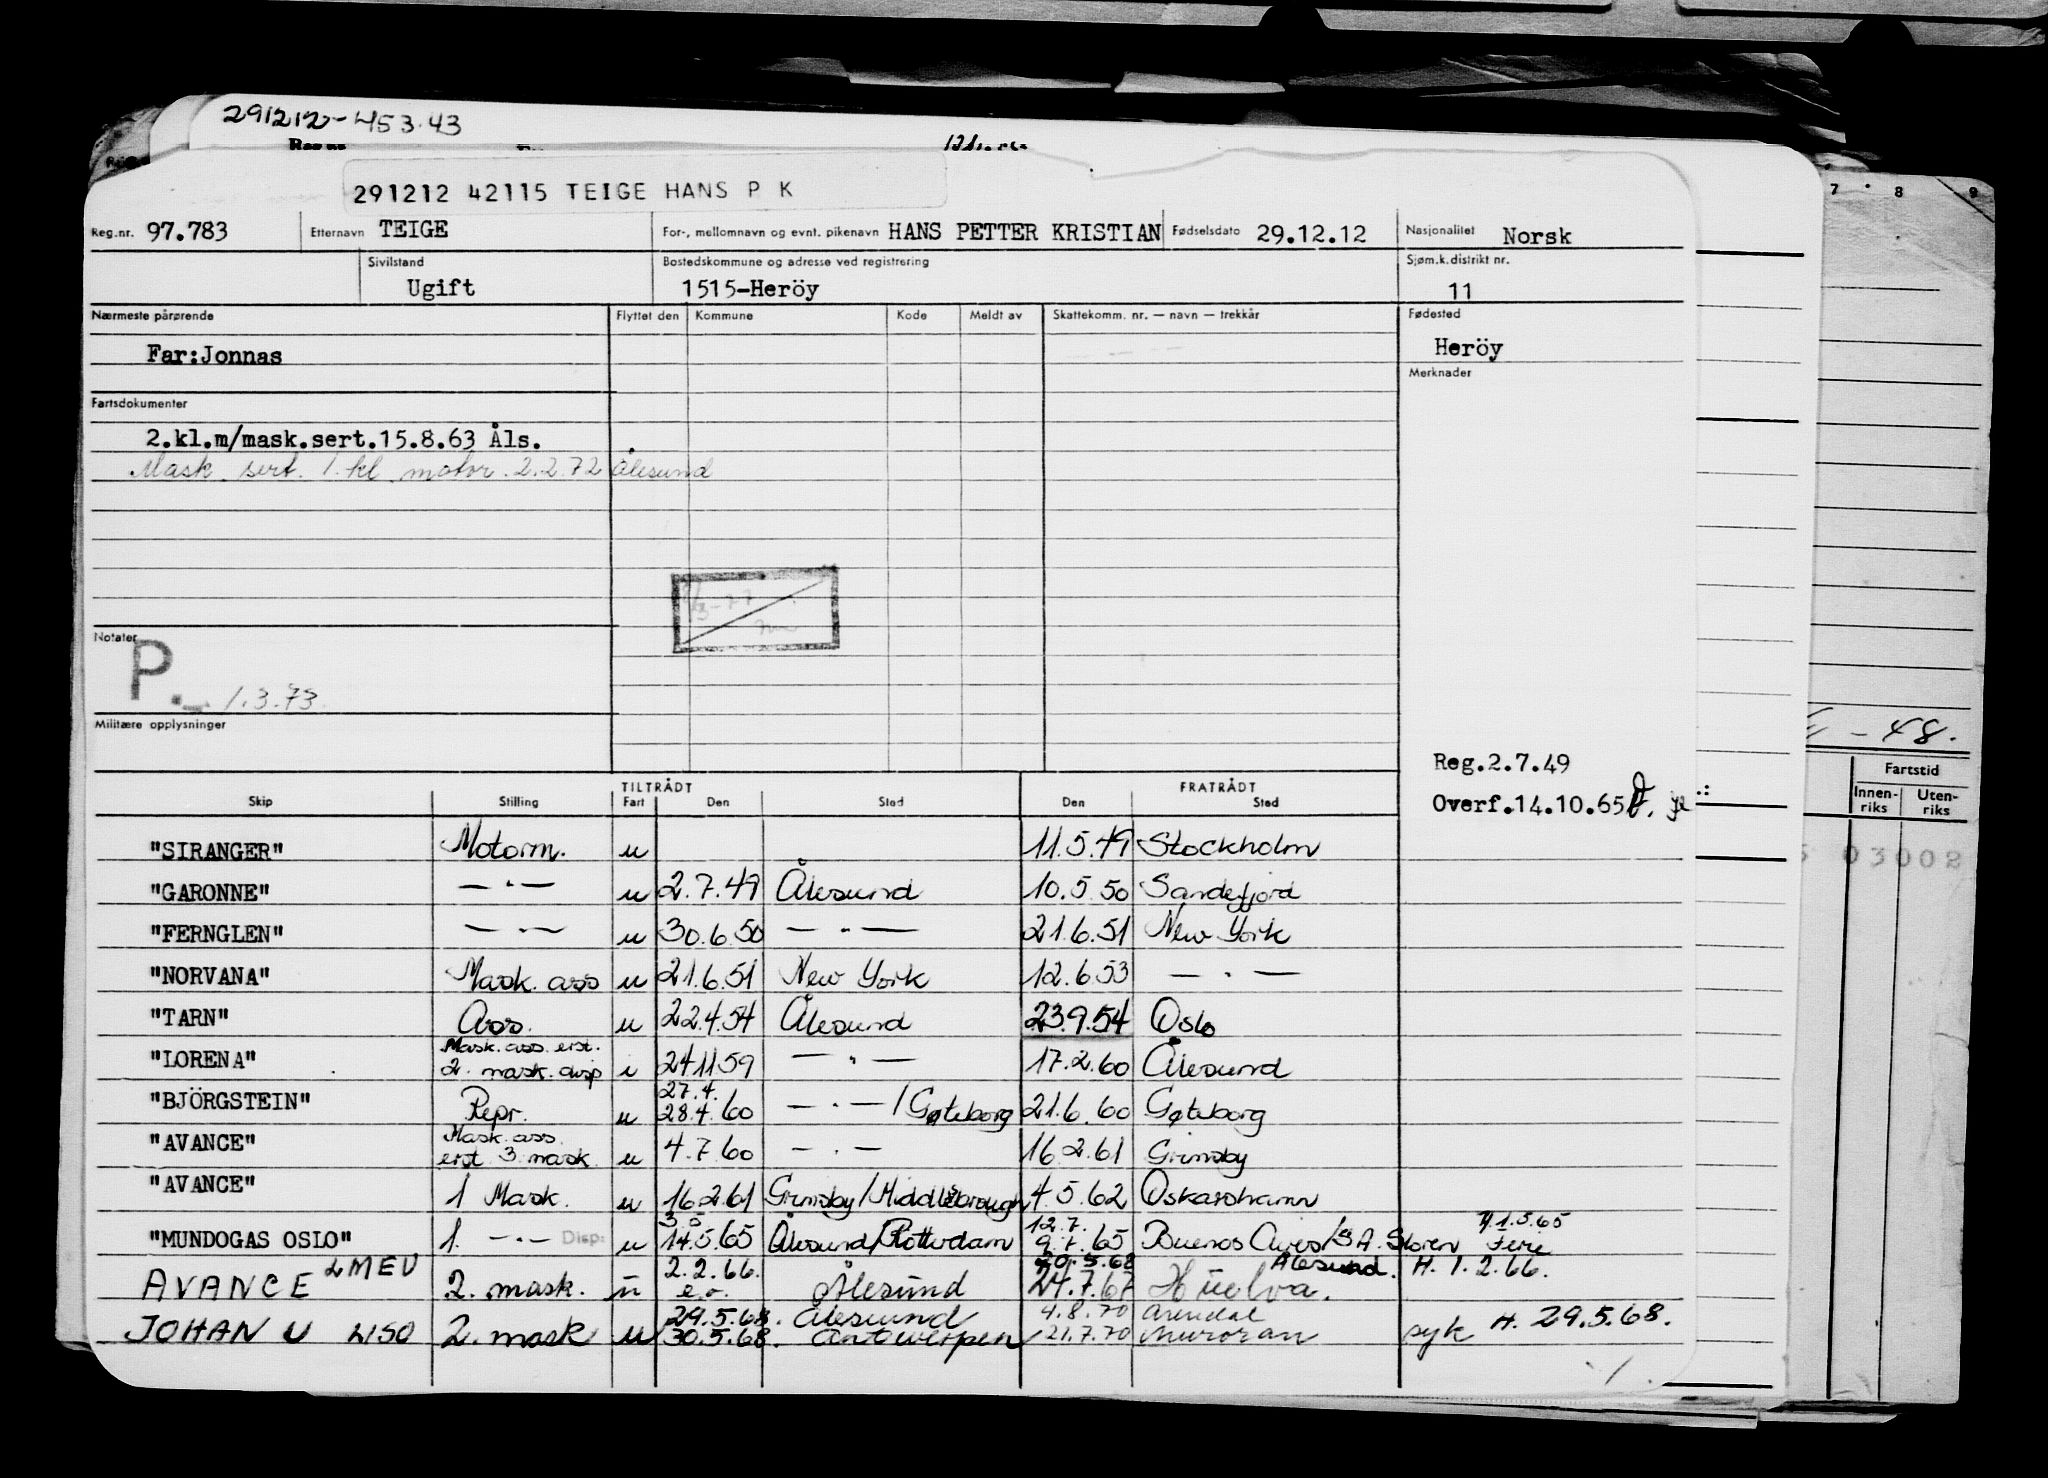 291212-453.43
291212 42115 TEIGE HANS P K
Reg.nr. 97.783 Etternavn TEIGE For-, mellomnavn og evnt. pikenavn HANS PETTER KRISTIAN Fødselsdato 29.12.12 Nasjonalitet Norsk
Sivilstand Ugift Bostedskommune og adresse ved registrering 1515-Heröy Sjøm.k.distrikt nr. 11
Nærmeste pårørende Flyttet den Kommune Kode Meldt av Skattekomm. nr. — navn — trekkår Fødested
Far:Jonnas Heröy
Merknader
Fartsdokumenter
2.kl.m/mask.sert.15.8.63 Åls.
Mask. sert. 1. kl. motor. 2.2.72 Ålesund
Notater
P. 1.3.73.
Militære opplysninger
Reg.2.7.49
Overf.14.10.65
TILTRÅDT FRATRÅDT
Skip Stilling Fart Den Sted Den Sted
"SIRANGER" Motorm. u 11.5.49 Stockholm
"GARONNE" — " — u 2.7.49 Ålesund 10.5.50 Sandefjord
"FERNGLEN" — " — u 30.6.50 — " — 21.6.51 New York
"NORVANA" Mask. ass u 21.6.51 New York 12.6.53 — " —
"TARN" Ass. u 22.4.54 Ålesund 23.9.54 Oslo
"LORENA" Mask. ass. erst. 2. mask. disp i 24.11.59 — " — 17.2.60 Ålesund
"BJÖRGSTEIN" Repr. u 27.4. 28.4.60 — " — / Gøteborg 21.6.60 Gøteborg
"AVANCE" Mask. ass. erst. 3. mask. u 4.7.60 — " — 16.2.61 Grimsby
"AVANCE" 1 Mask. u 16.2.61 Grimsby/Middlesbrough 4.5.62 Oskarshamn
"MUNDOGAS OSLO" 1. — " — Disp. u 3.5 14.5.65 Ålesund/Rotterdam 12.7. 9.7.65 Buenos Aires/ Ferie
AVANCE LMEU 2. mask. u 2.2.66. e.o. Ålesund 20.5.68 24.7.67 Ålesund. Huelva. H. 1.2.66.
JOHAN U LISO 2. mask u 29.5.68. Ålesund 30.5.68. Antwerpen 4.8.70 Arendal 21.7.70 Muroran syk H. 29.5.68.
7 8 9
- 48.
Fartstid
Innen-riks Uten-riks
03002